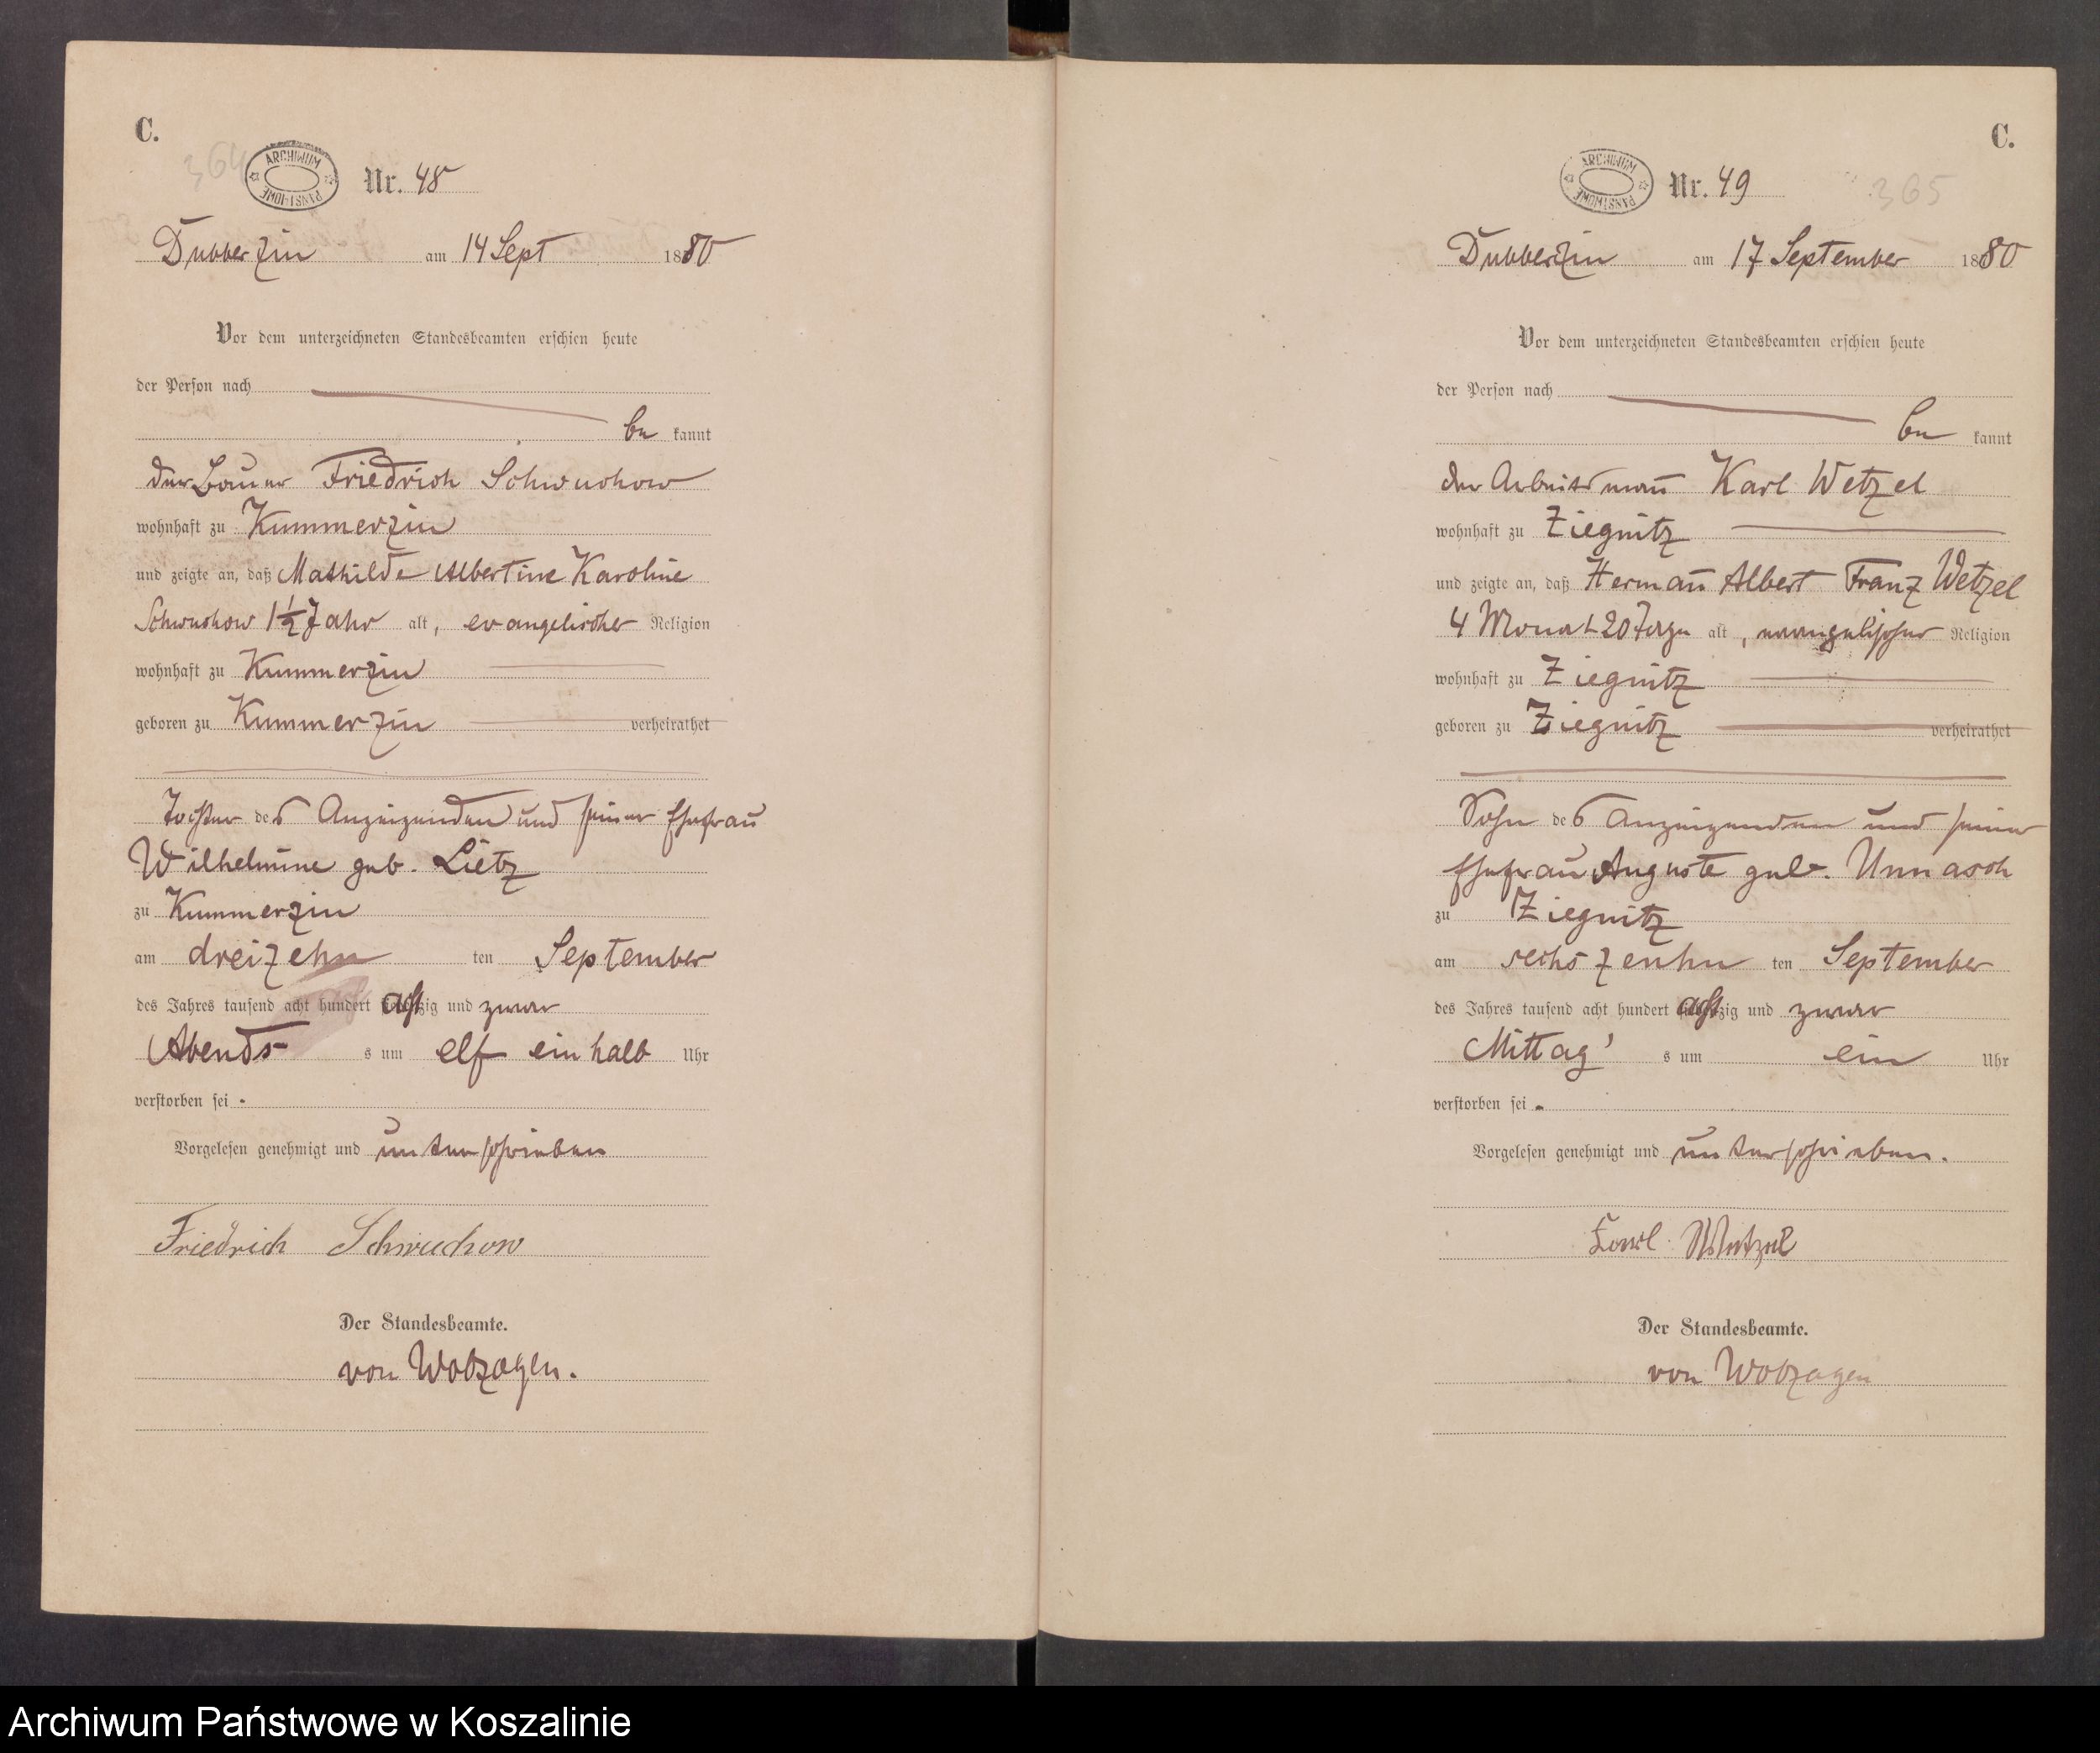 C.
364
ARCHIWUM PAŃSTWOWE
Nr. 48
Dubberzin am 14 Sept 1880
Vor dem unterzeichneten Standesbeamten erschien heute
der Person nach
be kannt
der Bauer Friedrich Schwuchow
wohnhaft zu Kummerzin
und zeigte an, daß Mathilde Albertine Karoline
Schwuchow 1 1/2 Jahr alt, evangelischer Religion
wohnhaft zu Kummerzin
geboren zu Kummerzin verheirathet
Tochter des Anzeigenden und seiner Ehefrau
Wilhelmine geb. Lietz
zu Kummerzin
am dreizehn ten September
des Jahres tausend acht hundert achtzig und zwar
Abends s um elf ein halb Uhr
verstorben sei.
Vorgelesen genehmigt und unterschrieben
Friedrich Schwuchow
Der Standesbeamte.
von Wobzagen.
C.
ARCHIWUM PAŃSTWOWE
Nr. 49
365
Dubberzin am 17 September 1880
Vor dem unterzeichneten Standesbeamten erschien heute
der Person nach
be kannt
der Arbeitsmann Karl Wetzel
wohnhaft zu Ziegnitz
und zeigte an, daß Hermañ Albert Franz Wetzel
4 Monat 20 Tage alt, evangelischer Religion
wohnhaft zu Ziegnitz
geboren zu Ziegnitz verheirathet
Sohn des Anzeigenden und seiner
Ehefrau Auguste geb. Unnasch
zu Ziegnitz
am sechszenhn ten September
des Jahres tausend acht hundert achtzig und zwar
Mittag' s um ein Uhr
verstorben sei.
Vorgelesen genehmigt und unterschrieben.
Karl Wetzel
Der Standesbeamte.
von Wobzagen
Archiwum Państwowe w Koszalinie